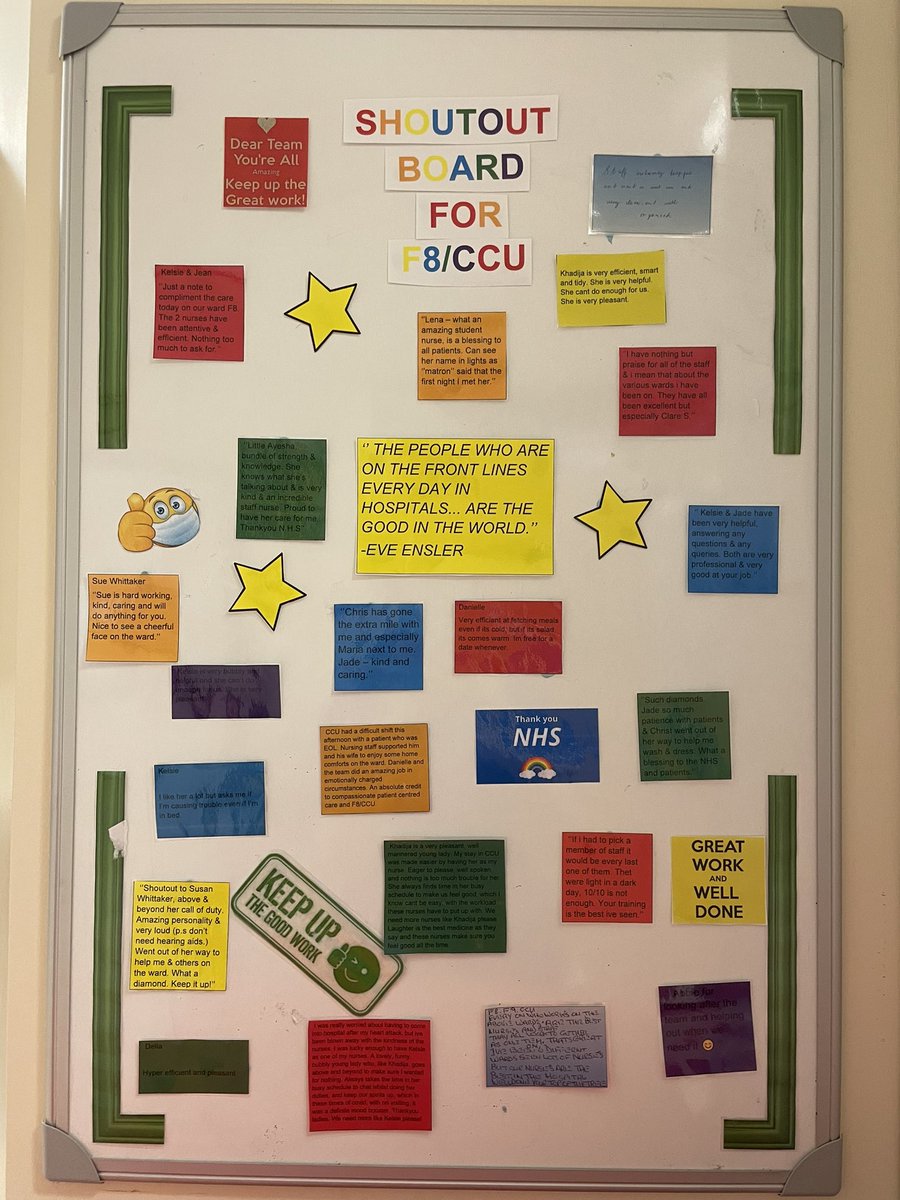 SHOUTOUT
BOARD
FOR
F8/CCU
Dear Team
You're All
Amazing
Keep up the
Great work!
Khadija is very efficient, smart
and tidy. She is very helpful.
She cant do enough for us.
She is very pleasant.
Kelsie & Jean
"Just a note to
compliment the care
today on our ward F8.
The 2 nurses have
been attentive &
efficient. Nothing too
much to ask for."
"Lena – what an
amazing student
nurse, is a blessing to
all patients. Can see
her name in lights as
"matron" said that the
first night I met her."
"I have nothing but
praise for all of the staff
& i mean that about the
various wards i have
been on. They have all
been excellent but
especially Clare S."
"Little Ayesha,
bundle of strength &
knowledge. She
knows what she's
talking about & is very
kind & an incredible
staff nurse. Proud to
have her care for me.
Thankyou N.H.S"
" THE PEOPLE WHO ARE
ON THE FRONT LINES
EVERY DAY IN
HOSPITALS... ARE THE
GOOD IN THE WORLD."
-EVE ENSLER
"Kelsie & Jade have
been very helpful,
answering any
questions & any
queries. Both are very
professional & very
good at your job."
Sue Whittaker
"Sue is hard working,
kind, caring and will
do anything for you.
Nice to see a cheerful
face on the ward."
"Chris has gone
the extra mile with
me and especially
Maria next to me.
Jade – kind and
caring."
Danielle
Very efficient at fetching meals
even if its cold, but if its salad
its comes warm. Im free for a
date whenever.
Kelsie is very bubbly and
helpful and she can't do
enough for us. She is very
pleasant.
CCU had a difficult shift this
afternoon with a patient who was
EOL. Nursing staff supported him
and his wife to enjoy some home
comforts on the ward. Danielle and
the team did an amazing job in
emotionally charged
circumstances. An absolute credit
to compassionate patient centred
care and F8/CCU
Thank you
NHS
"Such diamonds.
Jade so much
patience with patients
& Christ went out of
her way to help me
wash & dress. What a
blessing to the NHS
and patients."
Kelsie
I like her a lot but asks me if
I'm causing trouble even if I'm
in bed.
"Shoutout to Susan
Whittaker, above &
beyond her call of duty.
Amazing personality &
very loud (p.s don't
need hearing aids.)
Went out of her way to
help me & others on
the ward. What a
diamond. Keep it up!"
KEEP UP
THE GOOD WORK
Khadija is a very pleasant, well
mannered young lady. My stay in CCU
was made easier by having her as my
nurse. Eager to please, well spoken
and nothing is too much trouble for her.
She always finds time in her busy
schedule to make us feel good, which I
know cant be easy, with the workload
these nurses have to put up with. We
need more nurses like Khadija please.
Laughter is the best medicine as they
say and these nurses make sure you
feel good all the time.
"If I had to pick a
member of staff it
would be every last
one of them. Thet
were light in a dark
day, 10/10 is not
enough. Your training
is the best ive seen."
GREAT
WORK
AND
WELL
DONE
Delia
Hyper efficient and pleasant
I was really worried about having to come
into hospital after my heart attack, but ive
been blown away with the kindness of the
nurses. I was lucky enough to have Kelsie
as one of my nurses. A lovely, funny,
bubbly young lady who, like Khadija, goes
above and beyond to make sure I wanted
for nothing. Always takes the time in her
busy schedule to chat whilst doing her
duties, and keep our spirits up, which in
these times of covid, with no visiting, it
was a definite mood booster. Thankyou
ladies. We need more like Kelsie please!
F8. F9. CCU
EVERY ONE WHO WORKS ON THE
ABOVE WARDS. ARE THE BEST
BUT OUR NURSES ARE THE
BEST IN THE HOSPITAL
" Abbie for
looking after the
team and helping
out when we
need it